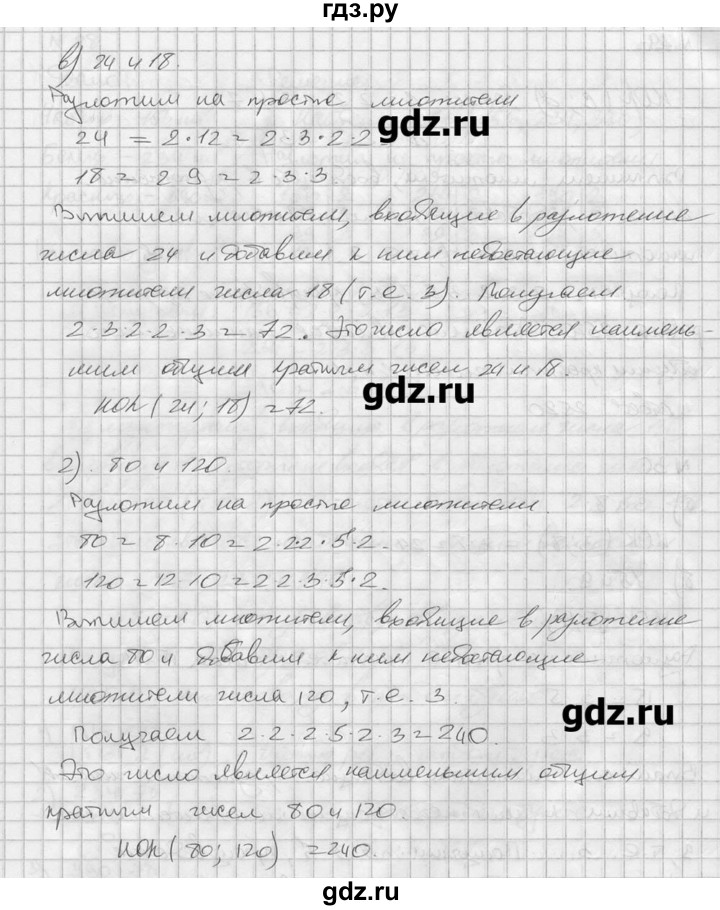 гдз.ру
в) 24 и 18.
Разложим на простые множители
gdz.ru
24 = 2·12 = 2·3·2·2
18 = 2 9 = 2·3·3.
Выпишем множители, входящие в разложение
числа 24 и добавим к ним недостающие
множители числа 18 (т.е. 3). Получаем
2·3·2·2·3 = 72. Это число является наимень-
шим общим кратным чисел 24 и 18.
gdz.ru
НОК (24; 18) = 72.
г). 80 и 120.
Разложим на простые множители.
80 = 8·10 = 2·2·2·5·2.
120 = 12·10 = 2·2·3·5·2.
Выпишем множители, входящие в разложение
числа 80 и добавим к ним недостающие
множители числа 120, т.е. 3.
gdz.ru
Получаем 2·2·2·5·2·3 = 240.
Это число является наименьшим общим
кратным чисел 80 и 120.
НОК (80; 120) = 240.
gdz.ru